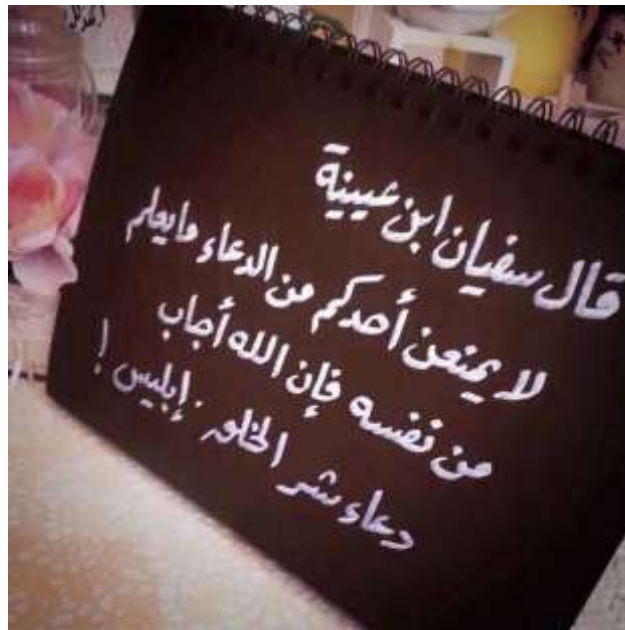 قال سفيان ابن عيينة
لا يمنعن أحدكم من الدعاء مايعلم
من نفسه فإن الله أجاب
دعاء شر الخلق. إبليس !